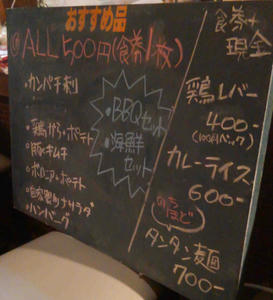 おすすめ品
ALL 500円(食券1枚)
・カンパチ刺
・鶏から・ポテト
・豚・キムチ
・ポロニア・ポテト
・ハンバーグ
・BBQセット
・海鮮
セット
食券+
現金
鶏レバー
400-
カレーライス
600-
のう
ほど
タンタン麺
700-